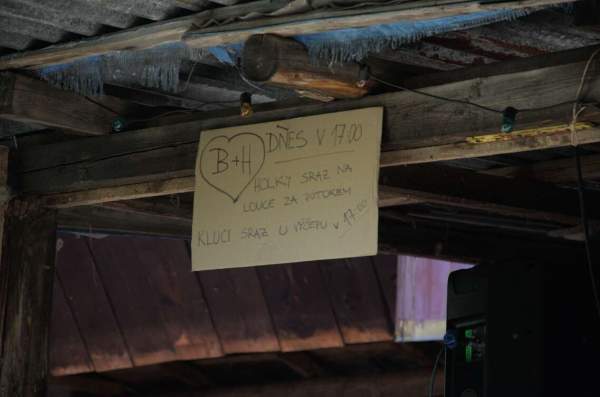 B+H
DNES V 17:00
HOLKY SRAZ NA
LOUCE ZA POTOKEM
KLUCI SRAZ U VÝČEPU V 17:00